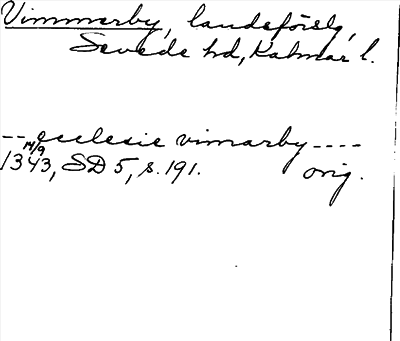 Vimmerby, landsförslg,
Sevede hd, Kalmar l.
-- ecclesie vimarby ----
14/9
1343, SD 5, s. 191. orig.